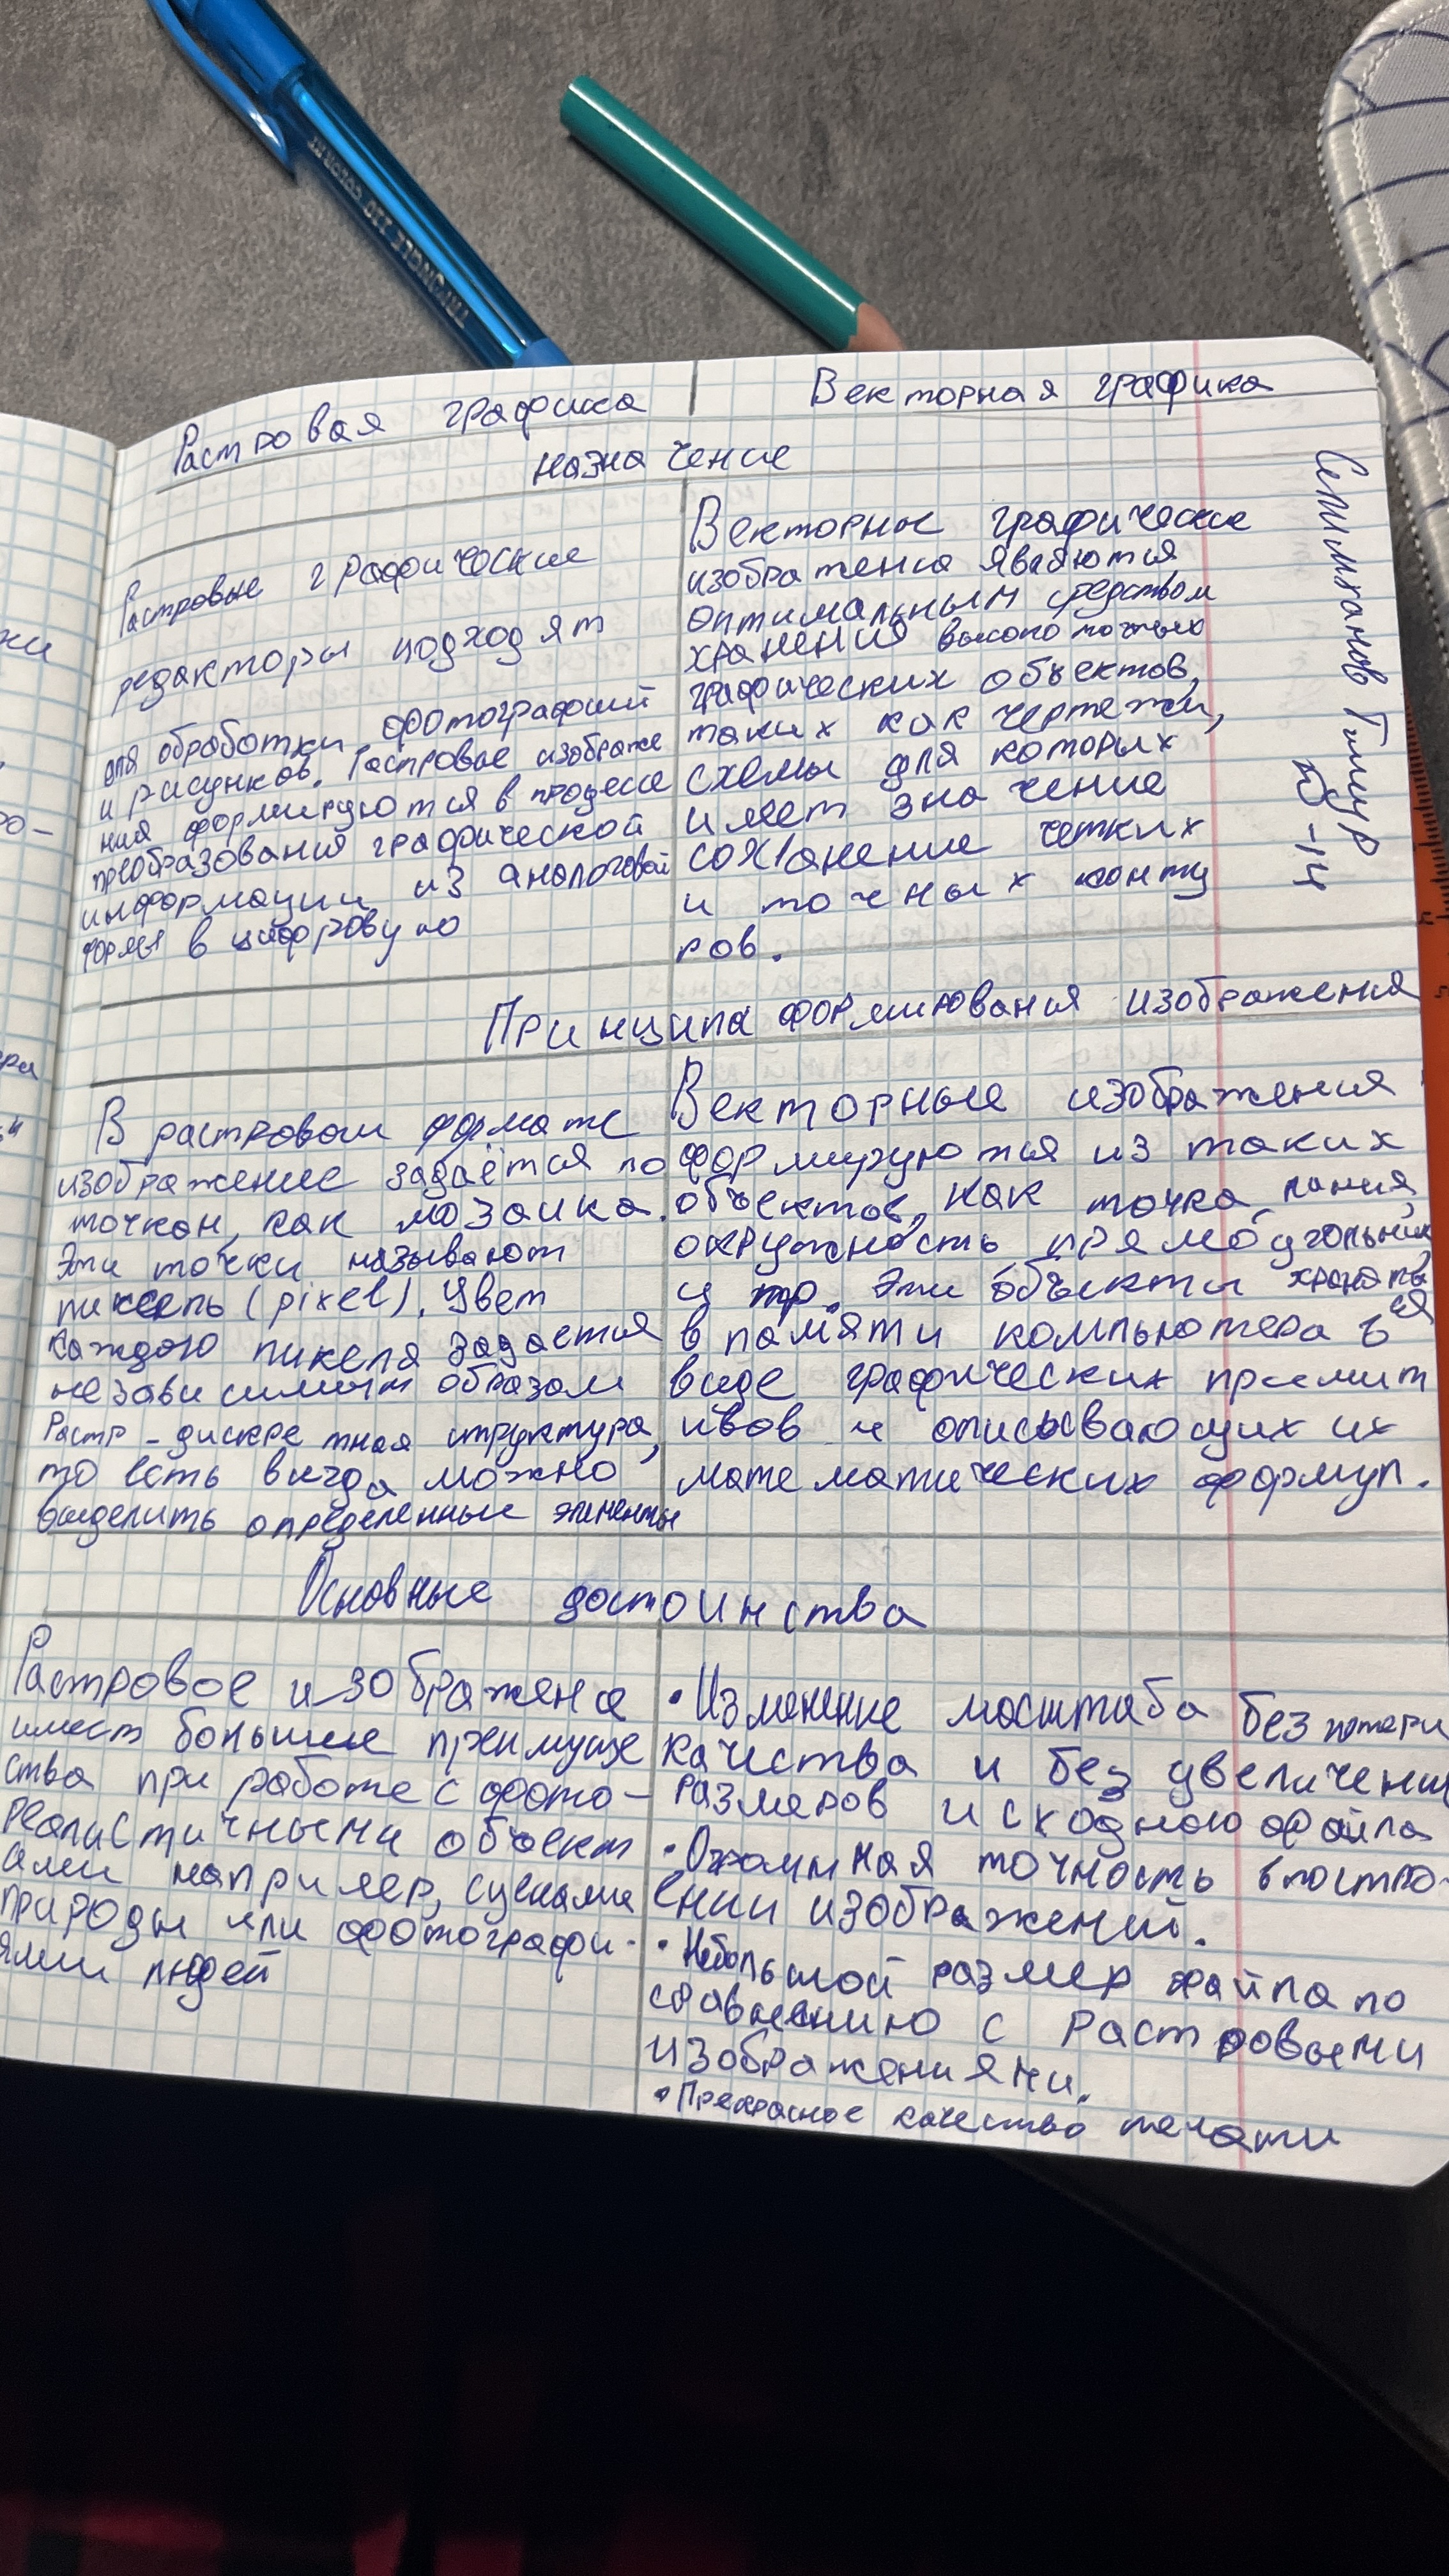 TRIANGLE 110 COLOR
Растровая графика
Векторная графика
назначение
Растровые графические
редакторы подходят
для обработки фотографий
и рисунков. Растровые изображе
ния формируются в процессе
преобразования графической
информации из аналоговой
формы в цифровую
Векторные графические
изображения являются
оптимальным средством
хранения высокоточных
графических объектов,
таких как чертежи,
схемы для которых
имеет значение
сохранение четких
и точных конту
ров.
Тимур
Принципа формирования изображения
В растровом формате
изображение задаётся по
точкам, как мозаика.
Эти точки называют
пиксель (pixel). Цвет
каждого пикеля задается
независимым образом
Растр - дискретная структура,
то есть всегда можно
выделить определенные элементы
Векторные изображения
формируются из таких
объектов, как точка, линия,
окружность, прямоугольник
и пр. Эти объекты хранятся
в памяти компьютера в
виде графических примит
ивов и описывающих их
математических формул.
Основные достоинства
Растровое изображение
имеет большие преимуще
ства при работе с фото-
реалистичными объект
ами например, сценами
природы или фотографи
ями людей
• Изменение масштаба без потери
качества и без увеличения
размеров исходного файла
• Огромная точность в постро-
ении изображений.
• Небольшой размер файла по
сравнению с растровыми
изображениями.
• Прекрасное качество печати